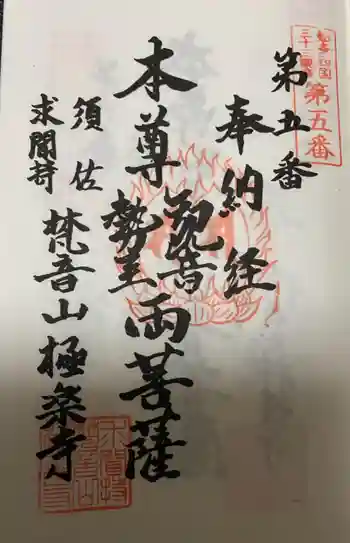 三十三観音
第五番
第五番
奉納経
本尊
観音
勢至
両菩薩
須佐
求聞持
梵音山極楽寺